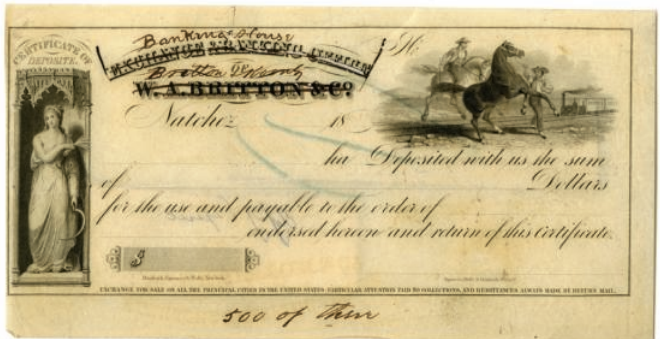 CERTIFICATE OF
DEPOSITE.
Banking House
EXCHANGE & BANKING OFFICE
OF
Britton &
W. A. BRITTON & Co.
No
Natchez 18
ha Deposited with us the sum
of Dollars
for the use and payable to the order of
endorsed hereon and return of this Certificate.
$
EXCHANGE FOR SALE ON ALL THE PRINCIPAL CITIES IN THE UNITED STATES. PARTICULAR ATTENTION PAID TO COLLECTIONS, AND REMITTANCES ALWAYS MADE BY RETURN MAIL.
500 of them